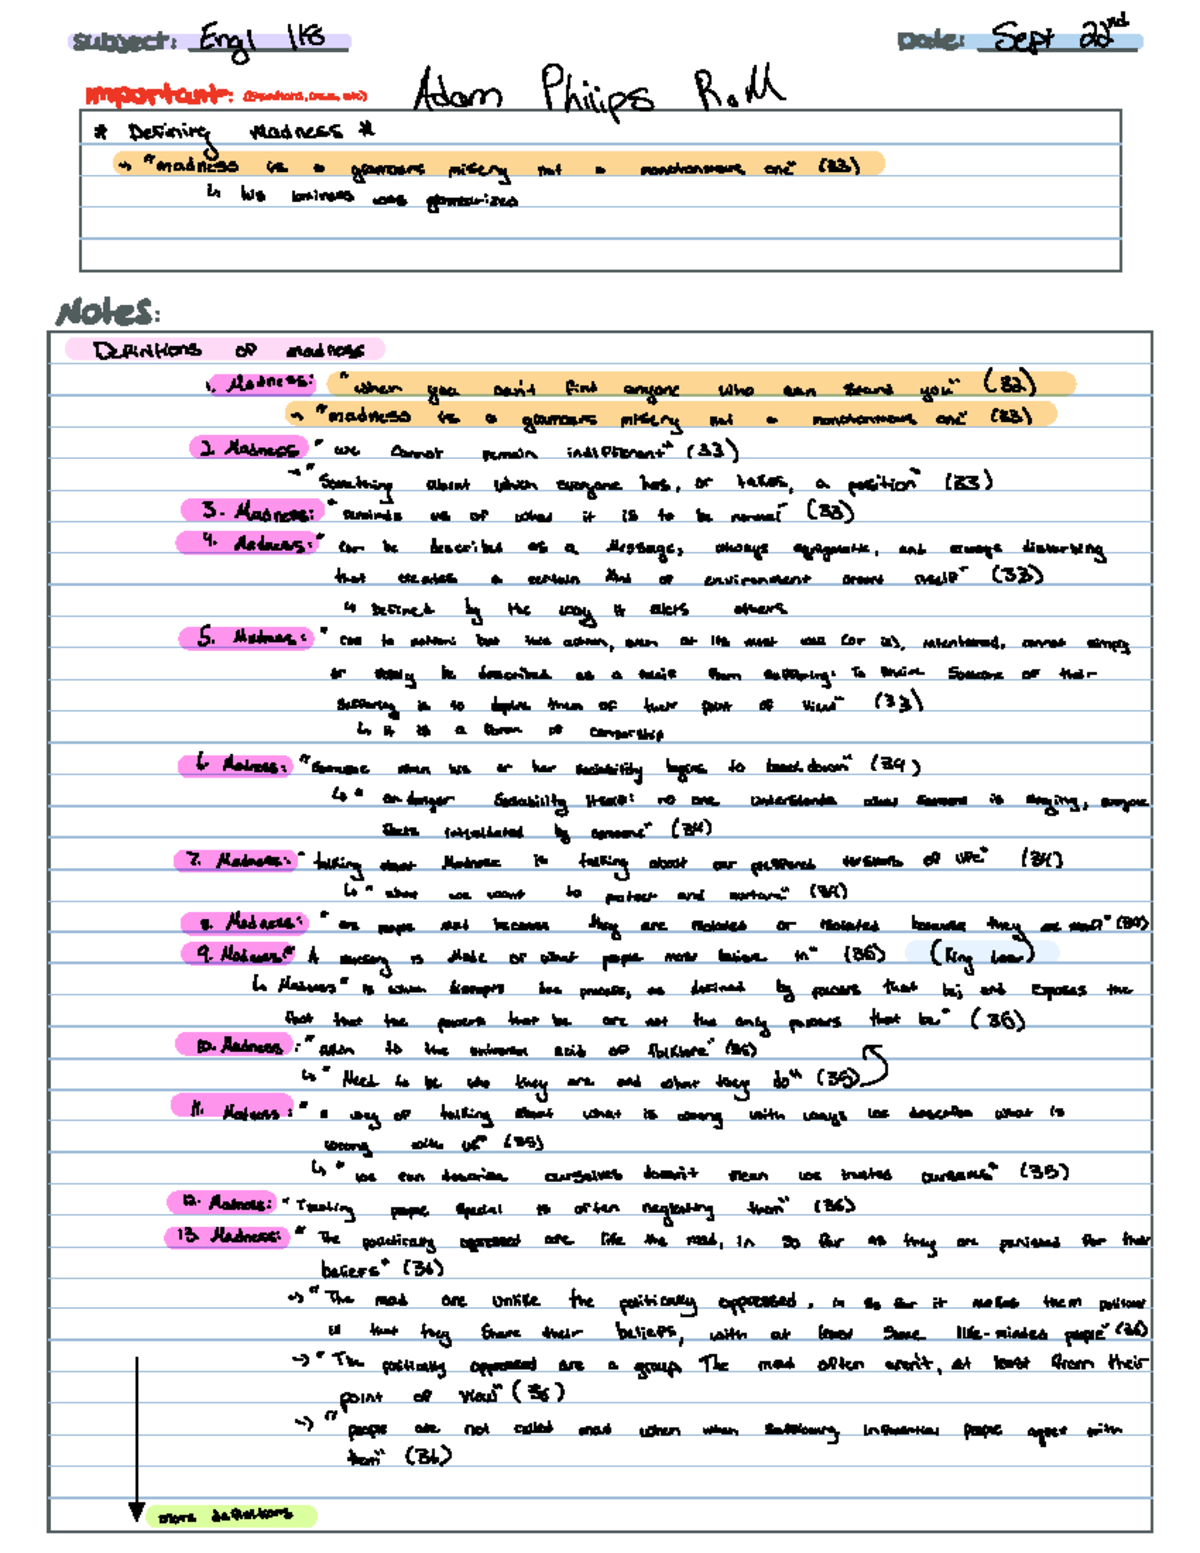 Subject: Engl 118 Date: Sept 22nd
Important: Adam Philips R.M
* Defining Madness *
→ "madness is a glamours misery not a monotonmous one" (33)
↳ his was glamourized
Notes:
Definitions of madness
1. Madness: "when you can't find anyone who can stand you" (32)
→ "madness is a glamours misery not a monotonmous one" (33)
2. Madness "we cannot remain indifferent" (33)
→ "Something about which everyone has, or takes, a position" (33)
3. Madness: "reminds us of what it is to be normal" (33)
4. Madness: "can be described as a message, always enigmatic, and always disturbing
that creates a certain kind of environment around itself" (33)
↳ Defined by the way it alerts others
5. Madness: "
be described as a from suffering: To Someone of their
suffering is to them of their point of view" (33)
↳ it is a form of censorship
6. Madness: "Someone when his or her sociability begins to break down" (34)
↳ " Sociability itself: no one understands what someone is saying, everyone
feels intimidated by someone" (34)
7. Madness: "talking about Madness is talking about our preffered versions of life" (34)
↳ "what we want to protect and nurture" (34)
8. Madness: "are people mad because they are isolated or isolated because they are mad?" (34)
9. Madness: "A mockery is made of what people most believe in" (35) (King Lear)
↳ Madness "is when disrupts the process, as defined by powers that be; and exposes the
fact that the powers that be are not the only powers that be" (35)
10. Madness: "akin to the universal acid of folklore" (35)
↳ "Need to be who they are and what they do" (35)
11. Madness: "a way of talking about what is wrong with ways we describe what is
wrong with us" (35)
↳ "we can describe ourselves doesn't mean we trusted ourselves" (35)
12. Madness: "Treating people special is often neglecting them" (36)
13. Madness: "The politically oppressed are like the mad, in so far as they are punished for their
beliefs" (36)
→ "The mad are unlike the politically oppressed, in so far it makes them political
is that they share their beliefs, with at least some like-minded people" (36)
→ "The politically oppressed are a group. The mad often aren't, at least from their
point of view" (36)
→ "people are not called mad when when sufficiently influential people agree with
them" (36)
more definitions